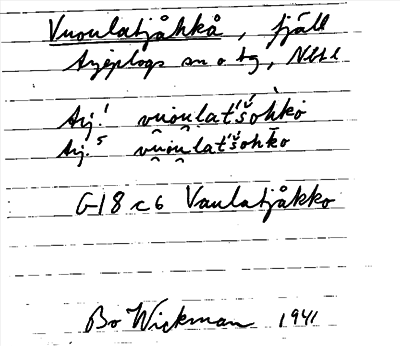 Vuoulatjåhkå, fjäll
Arjeplogs sn o tg, Nbtl
Arj.¹ vu̯ou̯lat'šohkò
Arj.⁵ vu̯ou̯lat'šohkō
G18 c6 Vaulatjåkko
Bo Wickman 1941